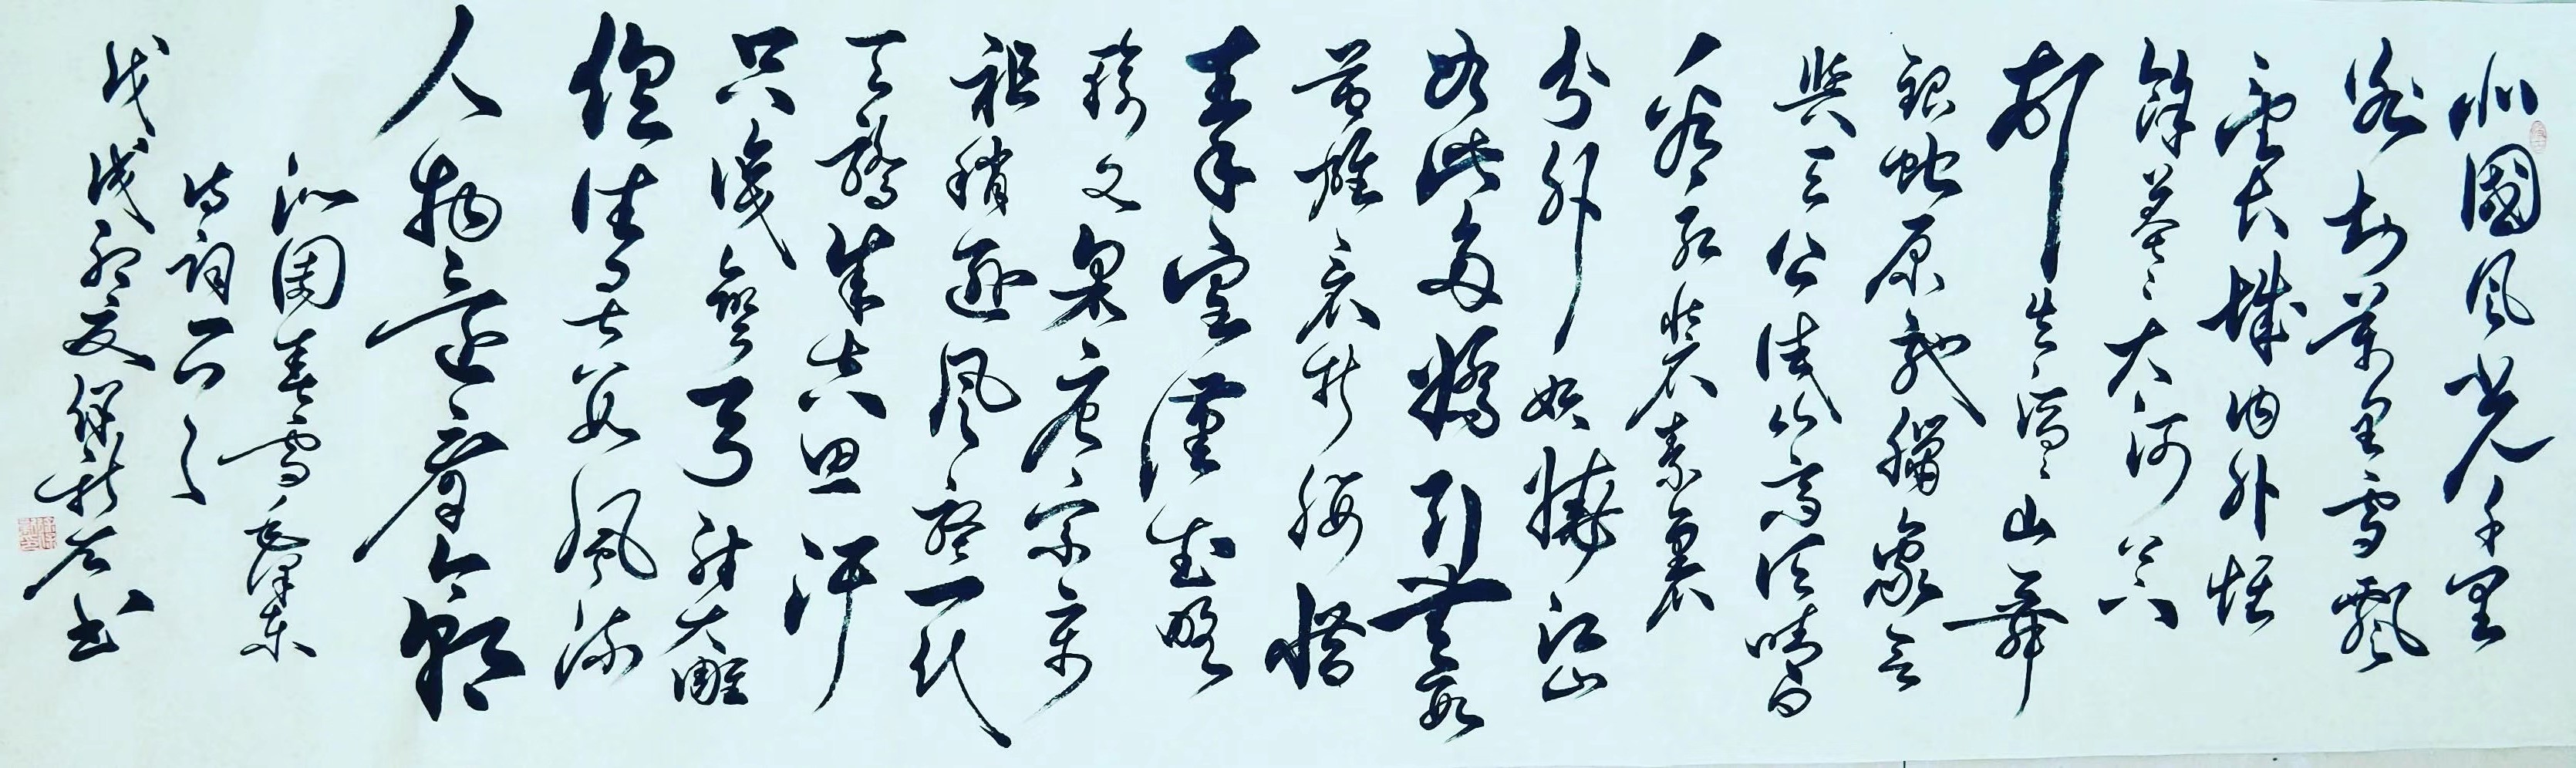 北國風光千里
冰封萬里雪飄
望長城內外惟
餘莽々大河上下
頓失滔々山舞
銀蛇原馳臘象欲
與天公試比高須晴日
看紅裝素裹
分外妖嬈江山
如此多嬌引無數
英雄競折腰惜
秦皇漢武略
輸文采唐宗宋
祖稍遜風騷一代
天驕成吉思汗
只識彎弓射大雕
俱往矣數風流
人物還看今朝
沁園春雪毛澤東
詩詞一首
戊戌初夏保新書